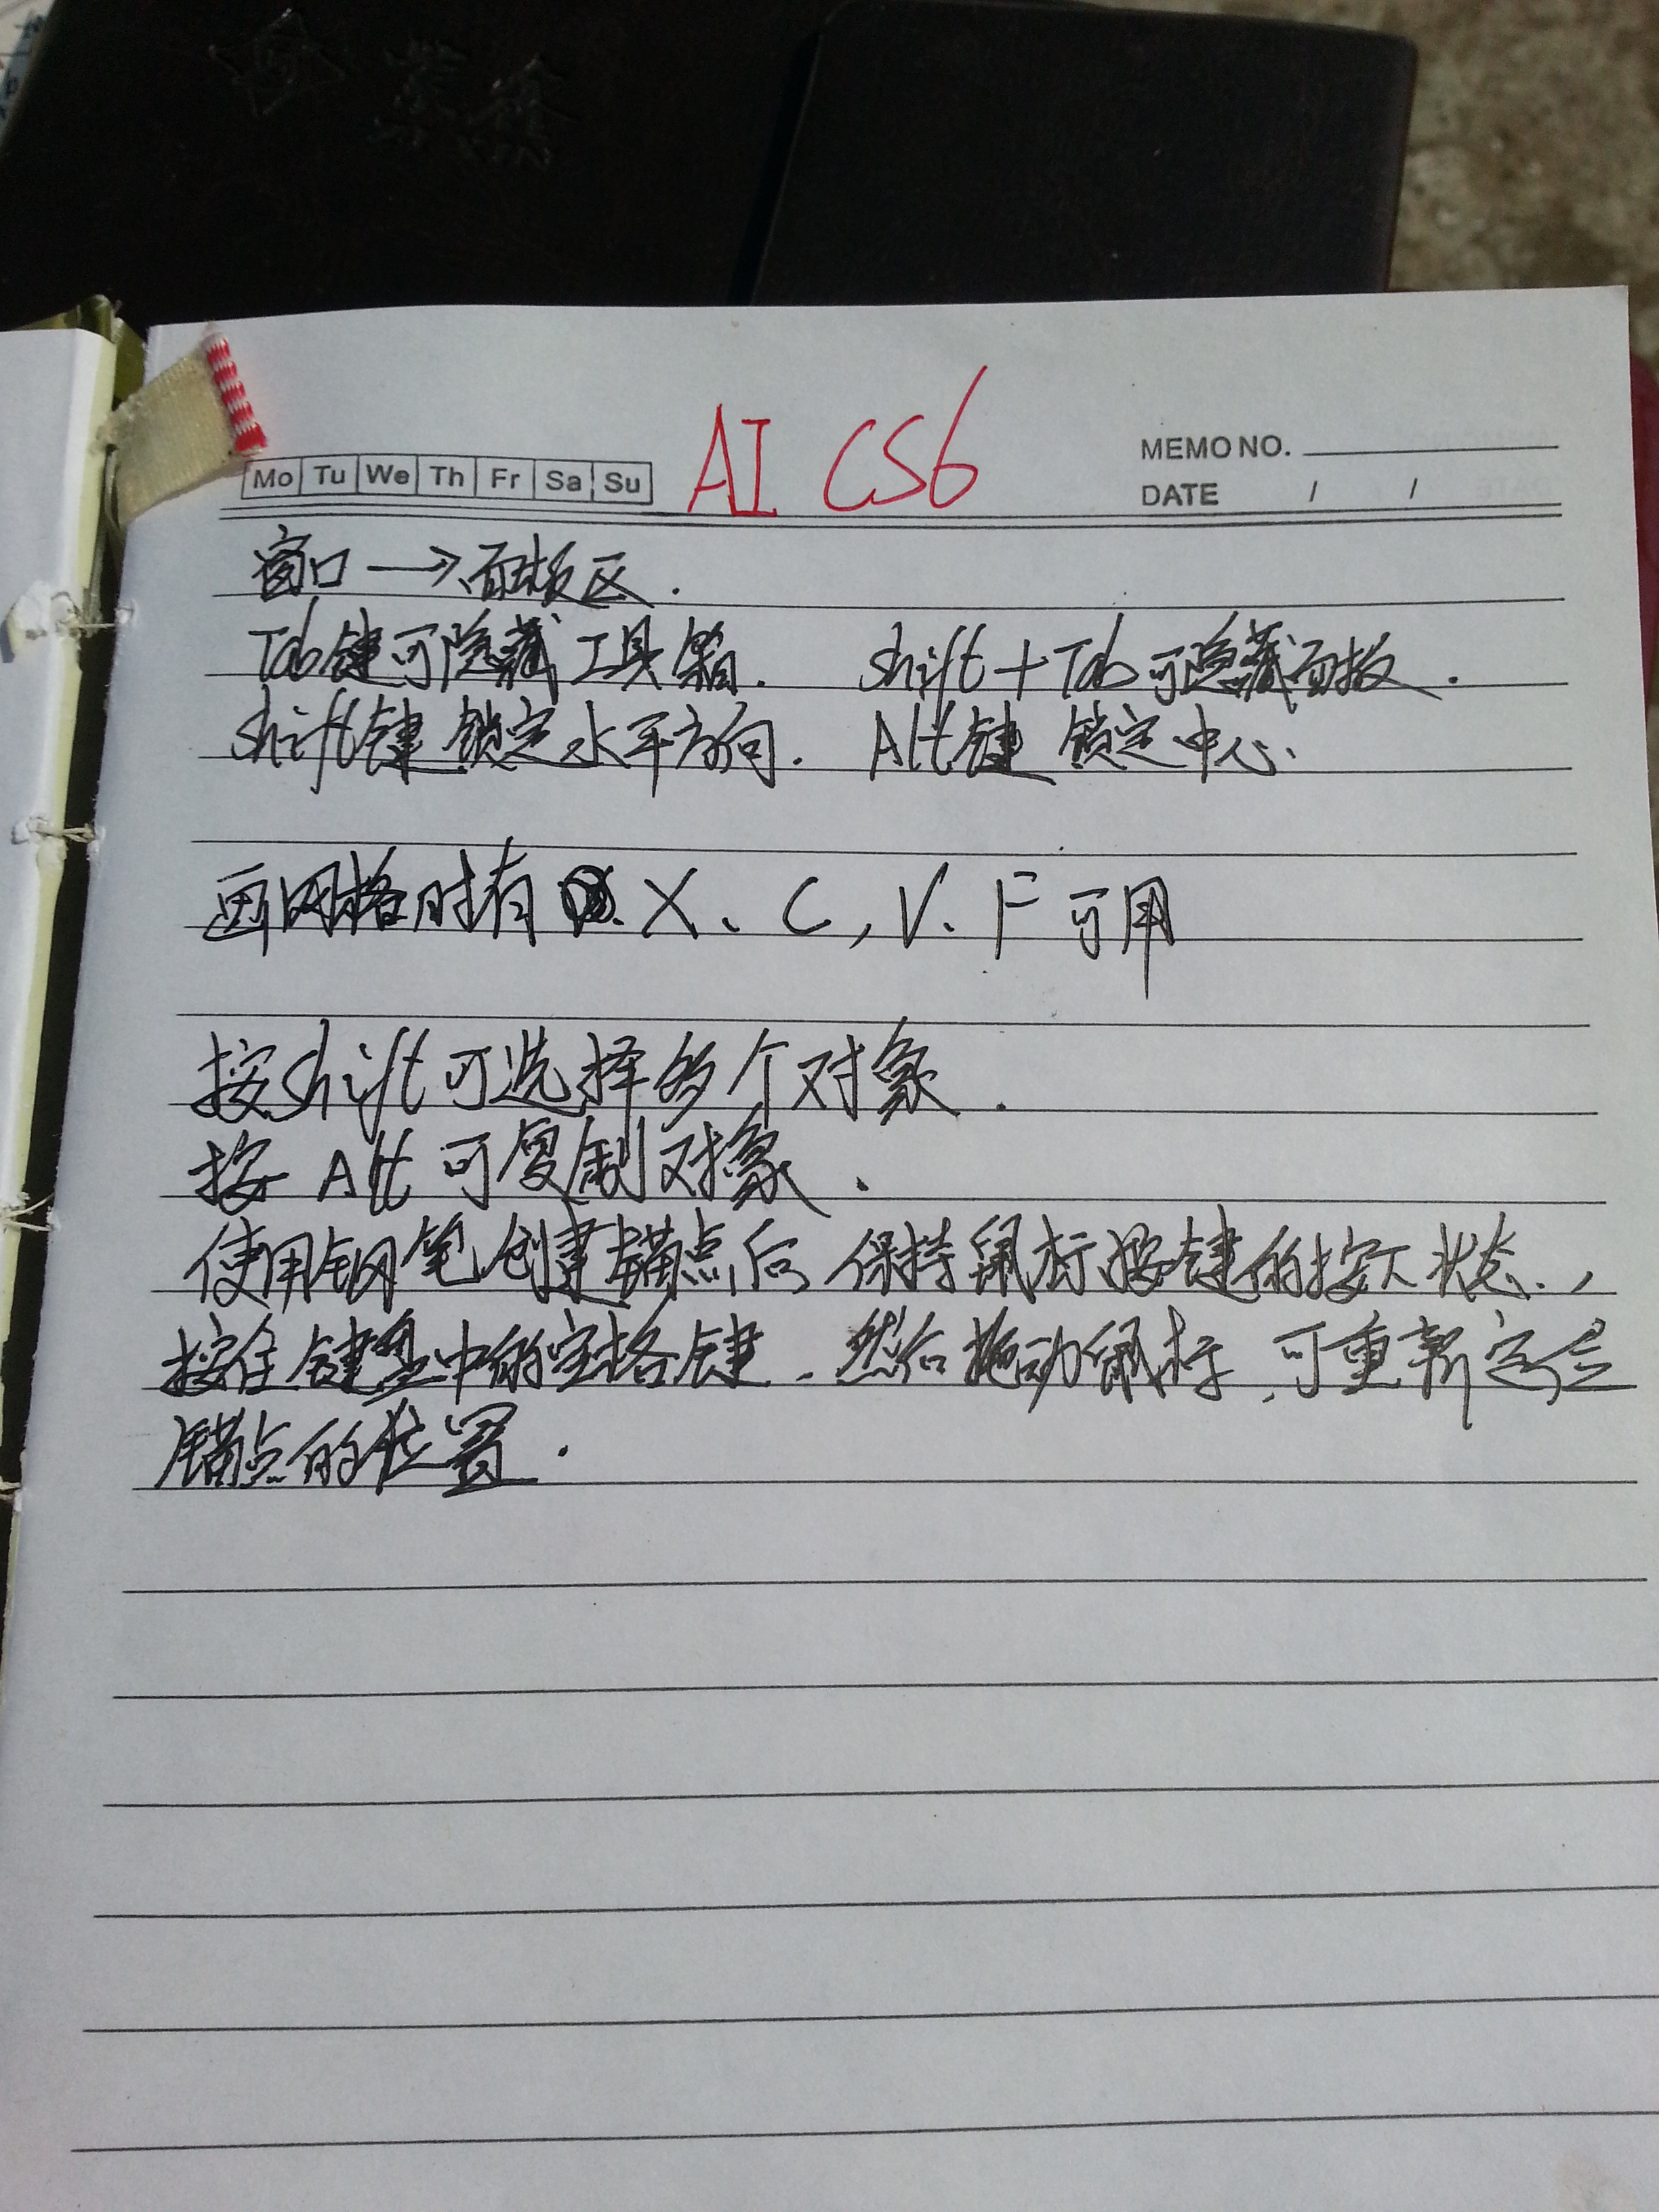 AI CS6
Mo Tu We Th Fr Sa Su
MEMO NO.
DATE / /
窗口→面板区.
Tab键可隐藏工具箱. shift+Tab可隐藏面板.
shift键锁定水平方向. Alt键锁定中心、
画网格时有 X、C,V、F可用
按shift可选择多个对象.
按Alt可复制对象.
使用钢笔创建锚点后,保持鼠标按键的按下状态.,
按住键盘中的空格键.然后拖动鼠标,可重新定位
锚点的位置.